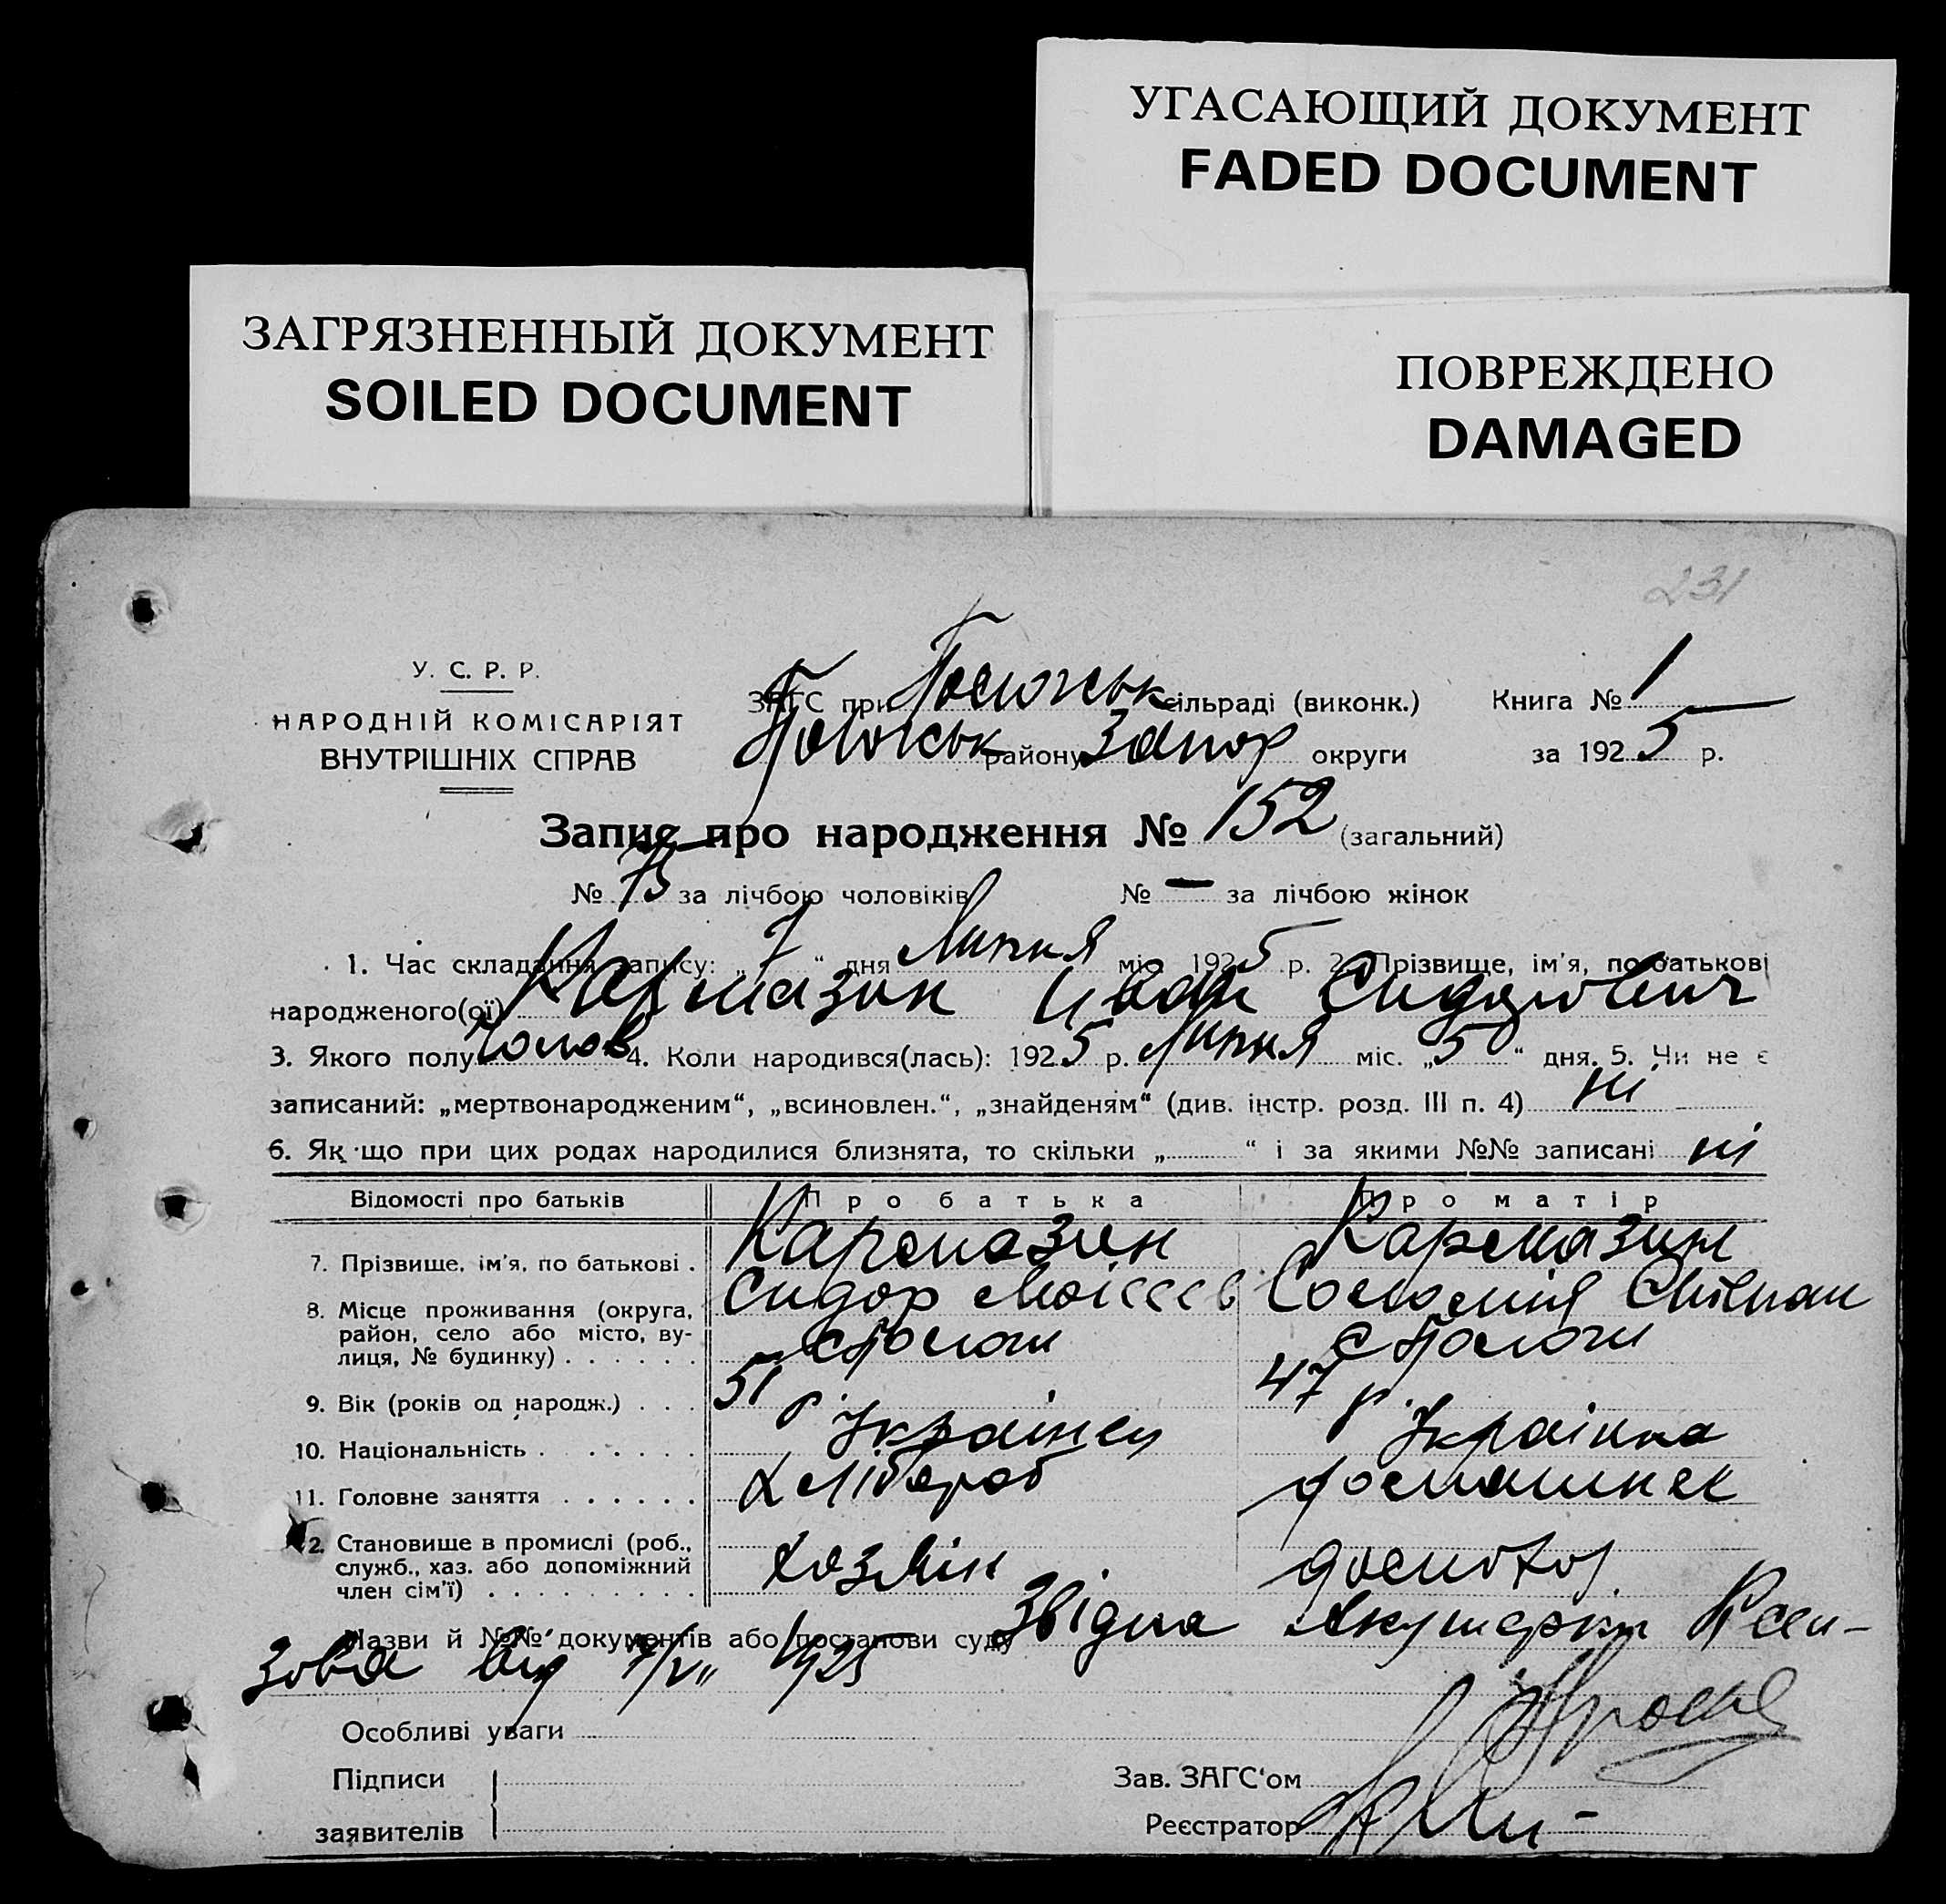 УГАСАЮЩИЙ ДОКУМЕНТ
FADED DOCUMENT
ЗАГРЯЗНЕННЫЙ ДОКУМЕНТ
SOILED DOCUMENT
ПОВРЕЖДЕНО
DAMAGED
231
У. С. Р. Р.
НАРОДНІЙ КОМІСАРІЯТ
ВНУТРІШНІХ СПРАВ
ЗАГС при Пологськ сільраді (виконк.)
Пологськ району Запор округи
Книга № 1
за 1925 р.
Запис про народження № 152 (загальний)
№ 75 за лічбою чоловіків № — за лічбою жінок
1. Час складання запису: „7“ дня Липня міс. 1925 р. 2. Прізвище, ім'я, по батькові
народженого(ої) Кармазин Иван Сидорович
3. Якого полу Чолов 4. Коли народився(лась): 1925 р. Липня міс. „5“ дня. 5. Чи не є
записаний: „мертвонародженим“, „всиновлен.“, „знайденям“ (див. інстр. розд. III п. 4) ні
6. Як-що при цих родах народилися близнята, то скільки „ “ і за якими №№ записані ні
Відомості про батьків Про батька Про матір
7. Прізвище, ім'я, по батькові . Кармазин Кармазин
Сидор Моісеєв Соломія
8. Місце проживання (округа, район, село або місто, вулиця, № будинку) . . . . . . с Пологи с Пологи
9. Вік (років од народж.) . . . 51 р. 47 р.
10. Національність . . . . . . Українец Українка
11. Головне заняття . . . . . . Хлібороб домашнєє
12. Становище в промислі (роб., служб., хаз. або допоміжний член сім'ї) . . . . . . . . . хозяїн домохоз.
Назви й №№ документів або постанови суду Звідка Акушерки
від 7/VII 1925
Особливі уваги
Підписи
заявителів
Зав. ЗАГС'ом
Реєстратор